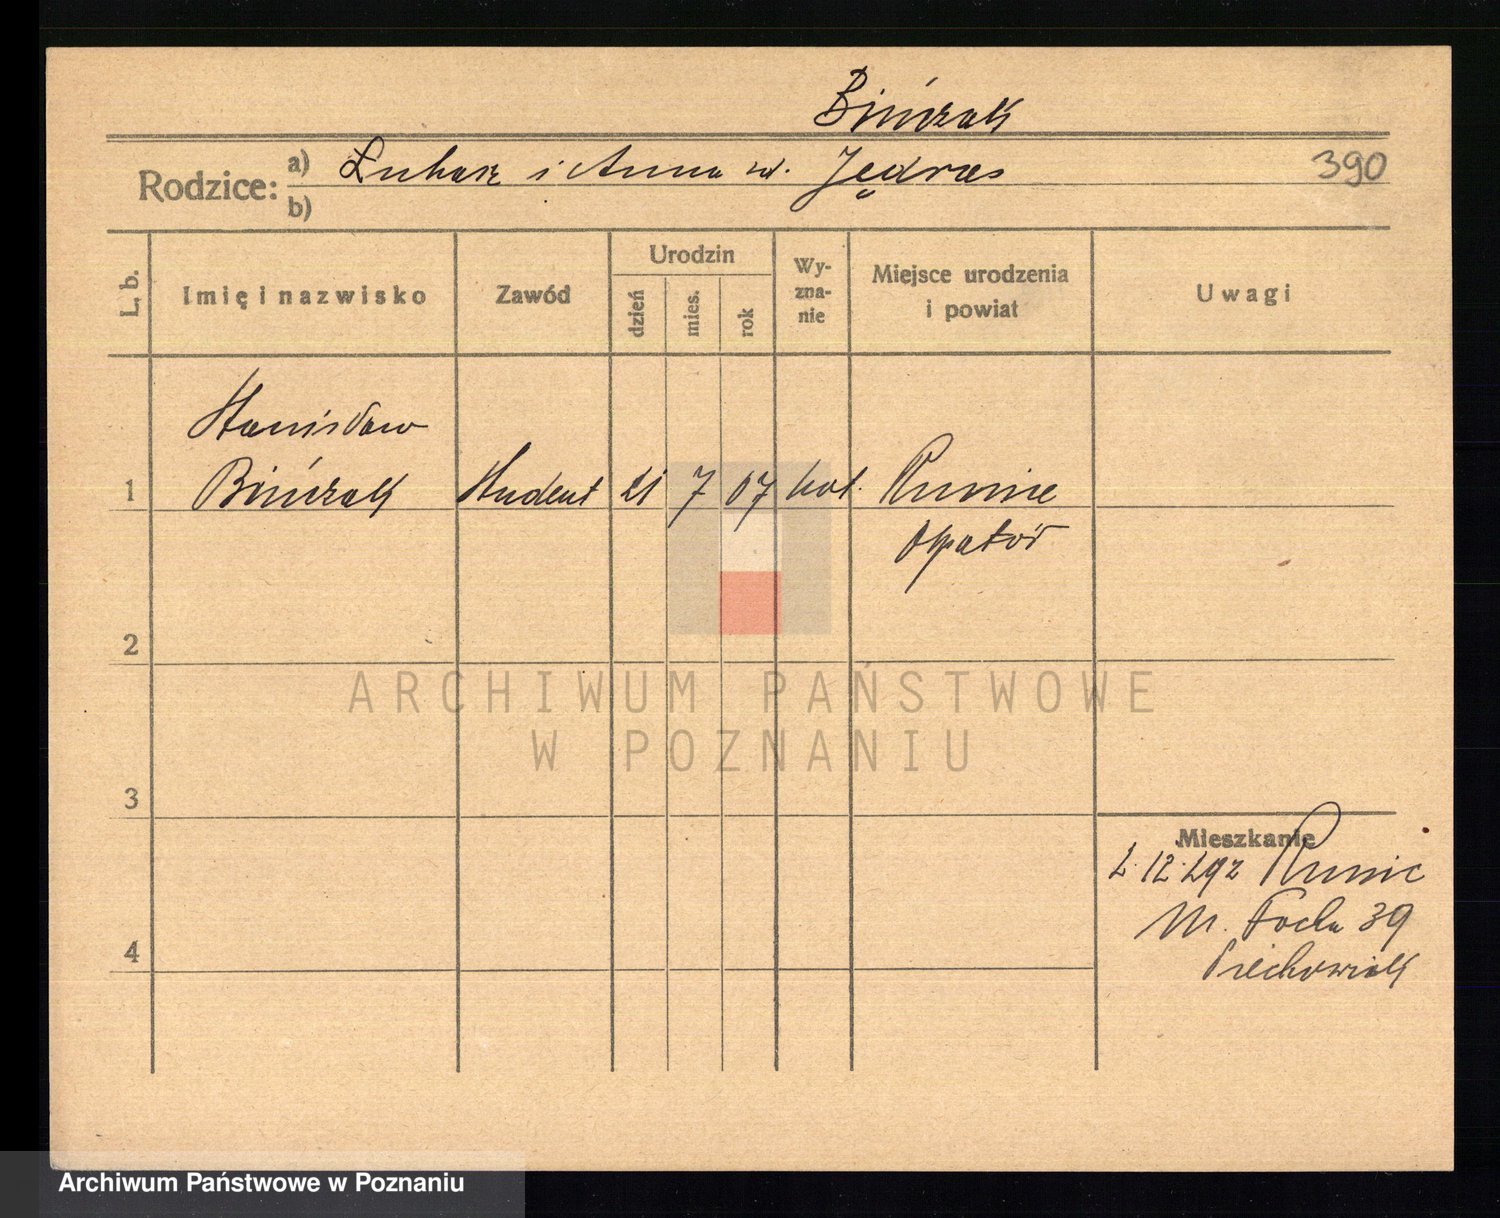 Bińczak
Rodzice: a) Łukasz i Anna zd. Jędras 390
b)
L. b. Imię i nazwisko Zawód Urodzin dzień mies. rok Wyznanie Miejsce urodzenia i powiat Uwagi
Stanisław
1 Bińczak Student 21 7 07 kat. Runnie
Opatów
2
ARCHIWUM PAŃSTWOWE
W POZNANIU
3
Mieszkanie
2.12.292
M. Focha 39
Piechowiak
4
Archiwum Państwowe w Poznaniu